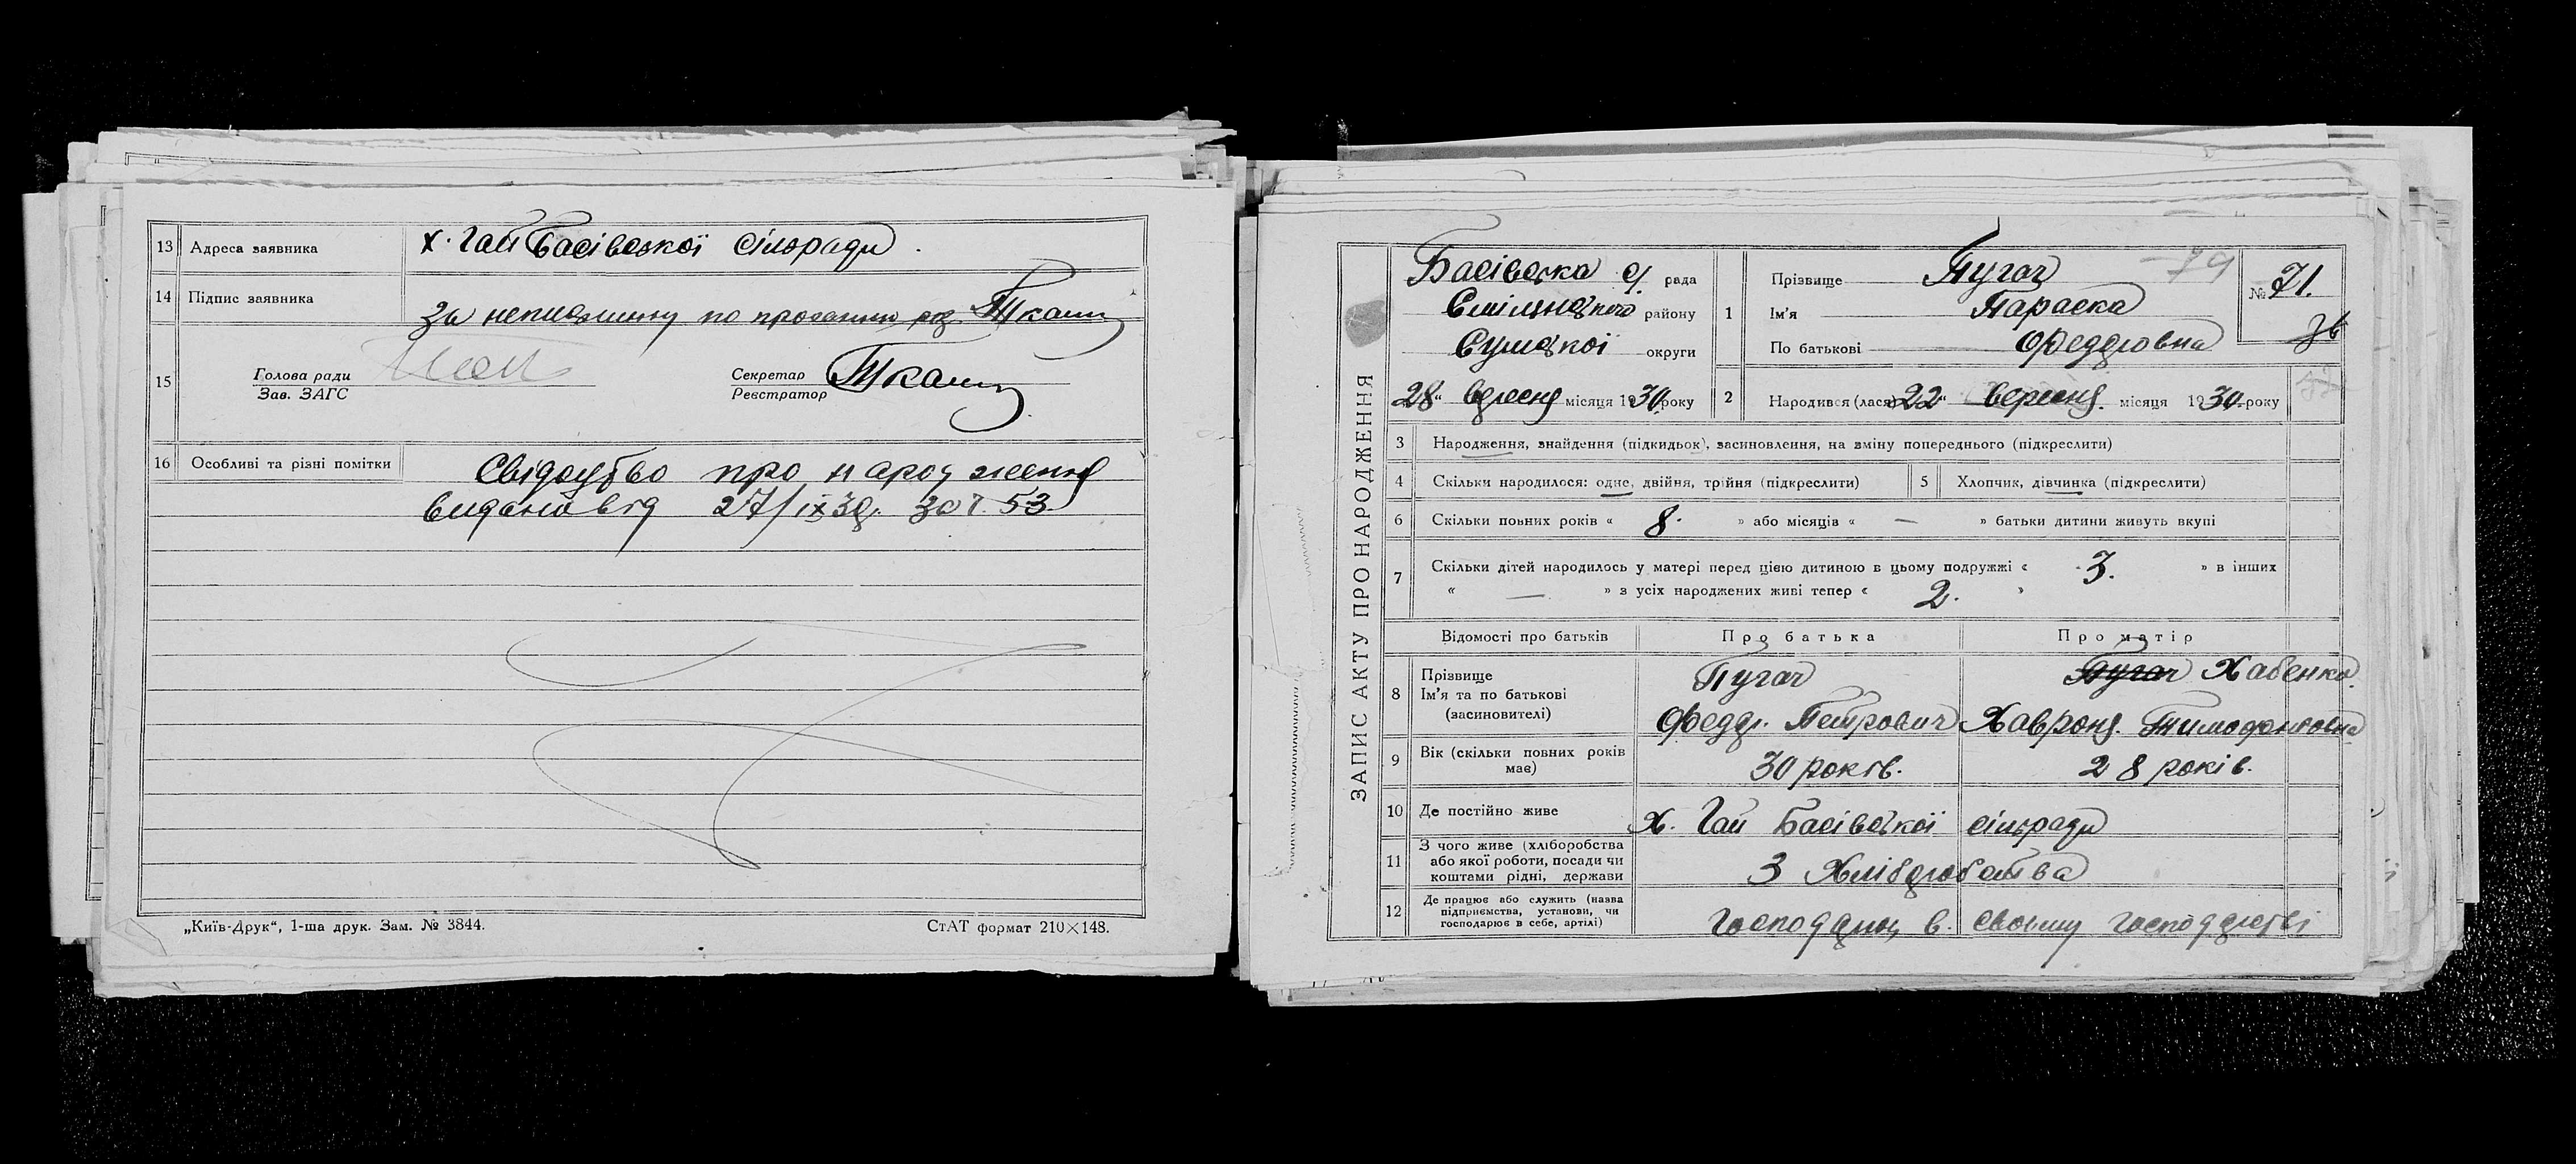 13 Адреса заявника х. Гай Басівської сільради.
14 Підпис заявника
за неписьмину по проханню Ткаш
15 Голова ради
Зав. ЗАГС
Секретар Ткаш
Реєстратор
16 Особливі та різні помітки Свідоцтво про народження
видано від 27/ІХ 30 за № 53
„Київ-Друк“, 1-ша друк. Зам. № 3844. СтАТ формат 210×148.
ЗАПИС АКТУ ПРО НАРОДЖЕННЯ
Басівська с/ рада
району
Сумської округи
28 вересня місяця 1930 року
1 Прізвище Пугач
Ім'я Параска
По батькові Федоровна
79
№ 71.
2 Народився (лася) „22“ вересня місяця 1930 року
3 Народження, знайдення (підкидьок), засиновлення, на зміну попереднього (підкреслити)
4 Скільки народилося: одне, двійня, трійня (підкреслити) 5 Хлопчик, дівчинка (підкреслити)
6 Скільки повних років « 8. » або місяців « — » батьки дитини живуть вкупі
7 Скільки дітей народилось у матері перед цією дитиною в цьому подружжі « 3. » в інших
« — » з усіх народжених живі тепер « 2. »
Відомості про батьків Про батька Про матір
8 Прізвище
Ім'я та по батькові
(засиновителі)
Пугач
Федор Петрович
Пугач Хабенко
Хавроня Тимофеевна
9 Вік (скільки повних років має) 30 років. 28 років.
10 Де постійно живе х. Гай Басівської сільради
11 З чого живе (хліборобства
або якої роботи, посади чи
коштами рідні, держави
З Хліборобства
12 Де працює або служить (назва
підприємства, установи, чи
господарює в себе, артілі)
в своєму господарстві